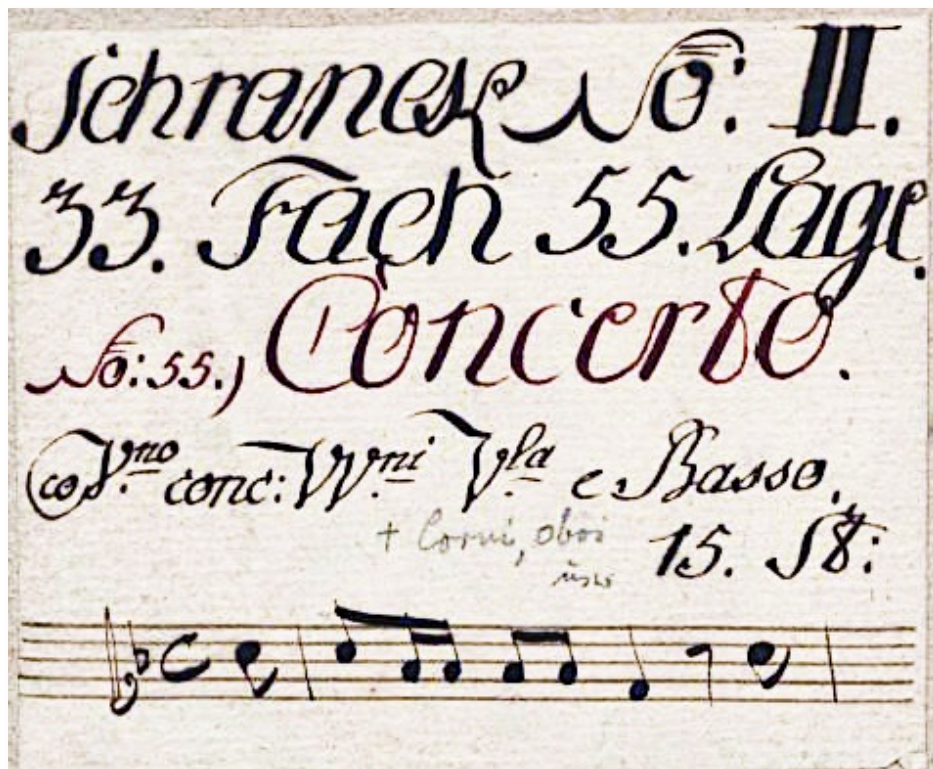 Schranck No: II.
33. Fach 55. Lage.
No: 55.) Concerto.
co Vno conc: VVni Vla e Basso.
+ Corni, oboi
usw
15. St: